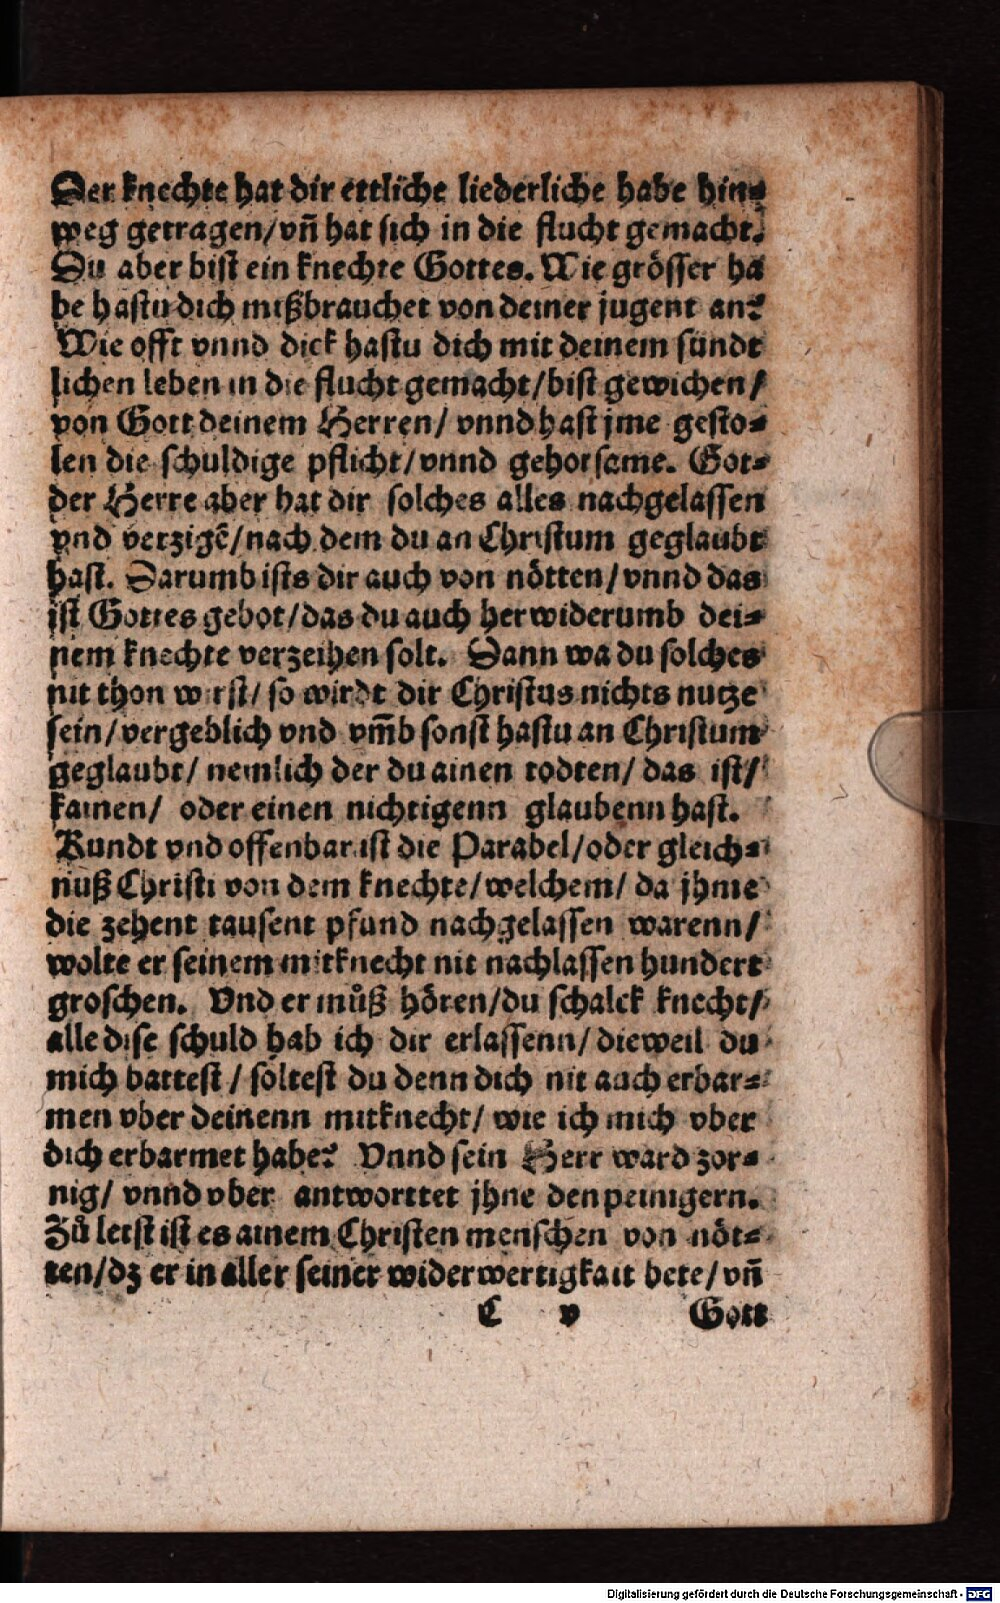 Der knechte hat dir ettliche liederliche habe hin⸗
weg getragen/ vñ hat sich in die flucht gemacht.
Du aber bist ein knechte Gottes. Wie grösser ha
be hastu dich mißbrauchet von deiner jugent an?
Wie offt vnnd dick hastu dich mit deinem sündt
lichen leben in die flucht gemacht/ bist gewichen/
von Gott deinem Herren/ vnnd hast jme gesto⸗
len die schuldige pflicht/ vnnd gehorsame. Got⸗
der Herre aber hat dir solches alles nachgelassen
vnd verzigẽ/ nach dem du an Christum geglaubt
hast. Darumb ists dir auch von nötten/ vnnd das
ist Gottes gebot/ das du auch herwiderumb dei⸗
nem knechte verzeihen solt. Dann wa du solches
nit thon wirst/ so wirdt dir Christus nichts nutze
sein/ vergeblich vnd vm̃b sonst hastu an Christum
geglaubt/ nemlich der du ainen todten/ das ist/
kainen/ oder einen nichtigenn glaubenn hast.
Kundt vnd offenbar ist die Parabel/ oder gleich⸗
nuß Christi von dem knechte/ welchem/ da jhme
die zehent tausent pfund nachgelassen warenn/
wolte er seinem mitknecht nit nachlassen hundert
groschen. Vnd er můß hören/ du schalck knecht/
alle dise schuld hab ich dir erlassenn/ dieweil du
mich battest/ soltest du denn dich nit auch erbar⸗
men vber deinenn mitknecht/ wie ich mich vber
dich erbarmet habe? Vnnd sein Herr ward zor⸗
nig/ vnnd vber antworttet jhne den peinigern.
Zů letst ist es ainem Christen menschen von nöt⸗
ten/ dz er in aller seiner widerwertigkait bete/ vñ
C v Gott
Digitalisierung gefördert durch die Deutsche Forschungsgemeinschaft - DFG